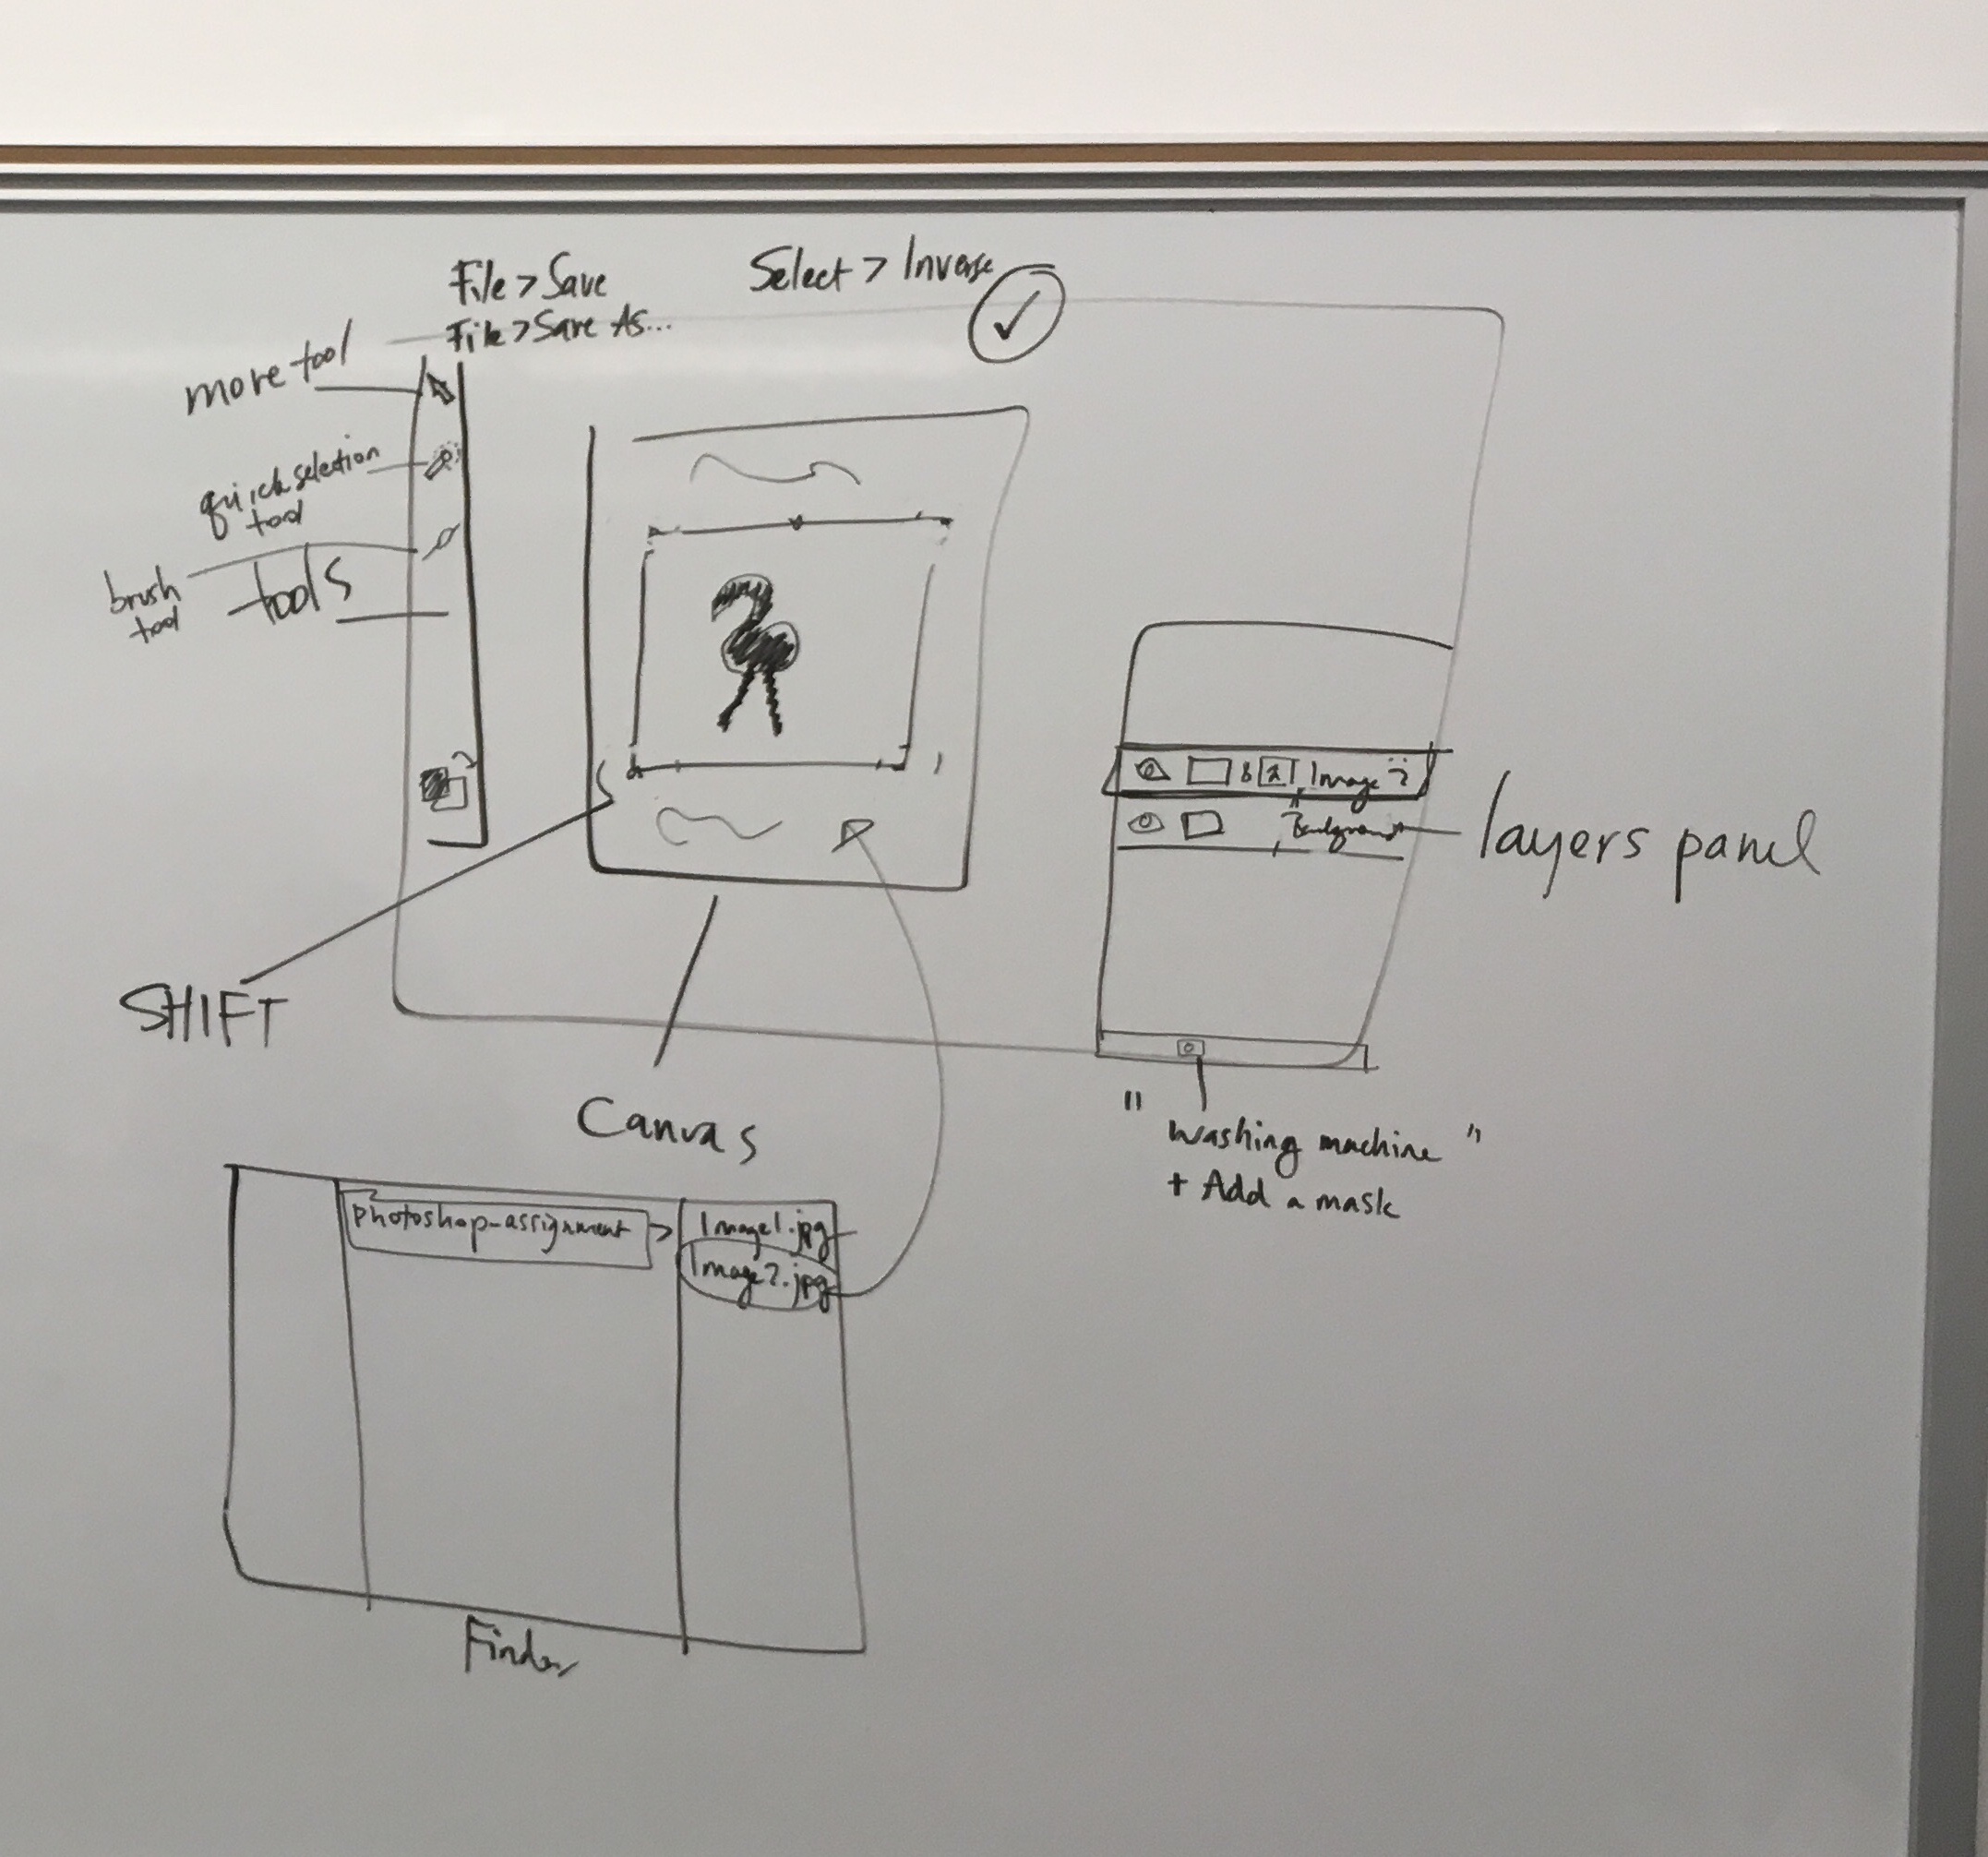 File > Save
File > Save As...
Select > Inverse
move tool
quick selection
tool
brush
tool
tools
Image 2
Background
layers panel
SHIFT
Canvas
" washing machine "
+ Add a mask
photoshop-assignment >
Image1.jpg
Image2.jpg
Finder